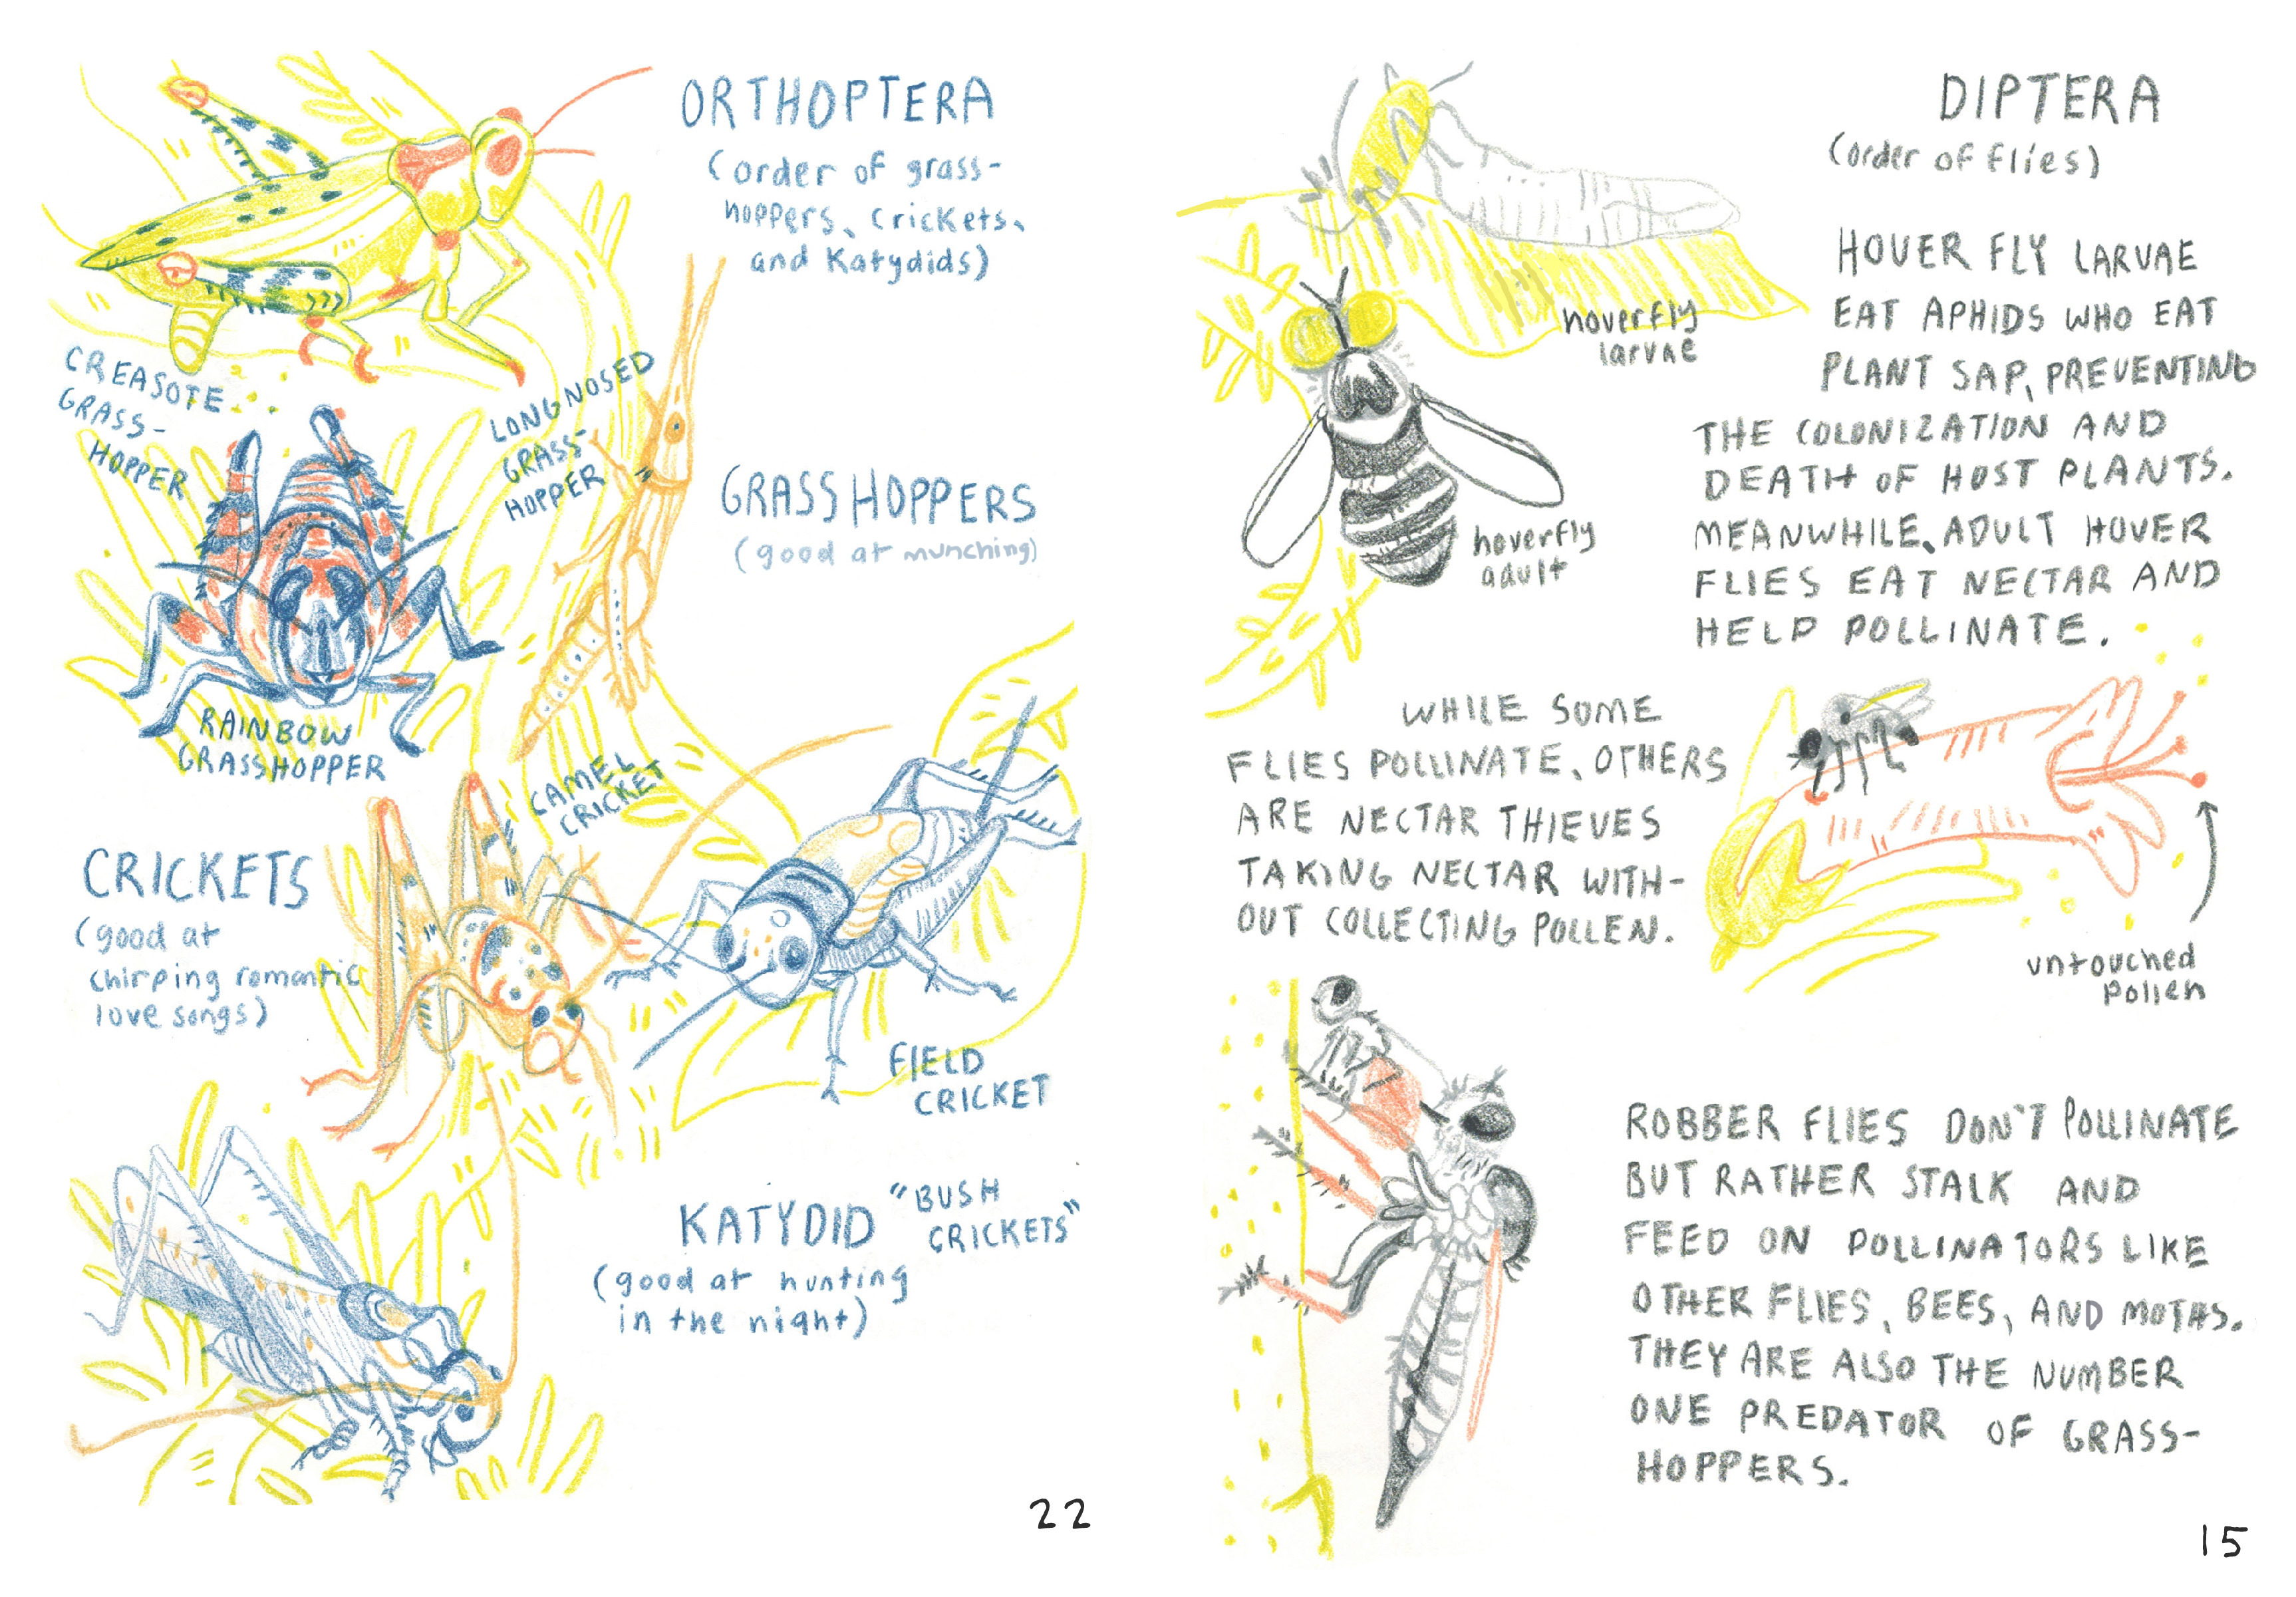 ORTHOPTERA
(order of grass-
hoppers, crickets,
and Katydids)
CREASOTE
GRASS-
HOPPER
LONGNOSED
GRASS-
HOPPER
GRASSHOPPERS
(good at munching)
RAINBOW
GRASSHOPPER
CAMEL
CRICKET
CRICKETS
(good at
chirping romantic
love songs)
FIELD
CRICKET
KATYDID "BUSH
CRICKETS"
(good at hunting
in the night)
22
DIPTERA
(order of flies)
HOVER FLY LARVAE
EAT APHIDS WHO EAT
PLANT SAP, PREVENTING
THE COLONIZATION AND
DEATH OF HOST PLANTS.
MEANWHILE, ADULT HOVER
FLIES EAT NECTAR AND
HELP POLLINATE.
hoverfly
larvae
hoverfly
adult
WHILE SOME
FLIES POLLINATE, OTHERS
ARE NECTAR THIEVES
TAKING NECTAR WITH-
OUT COLLECTING POLLEN.
untouched
pollen
ROBBER FLIES DON'T POLLINATE
BUT RATHER STALK AND
FEED ON POLLINATORS LIKE
OTHER FLIES, BEES, AND MOTHS.
THEY ARE ALSO THE NUMBER
ONE PREDATOR OF GRASS-
HOPPERS.
15